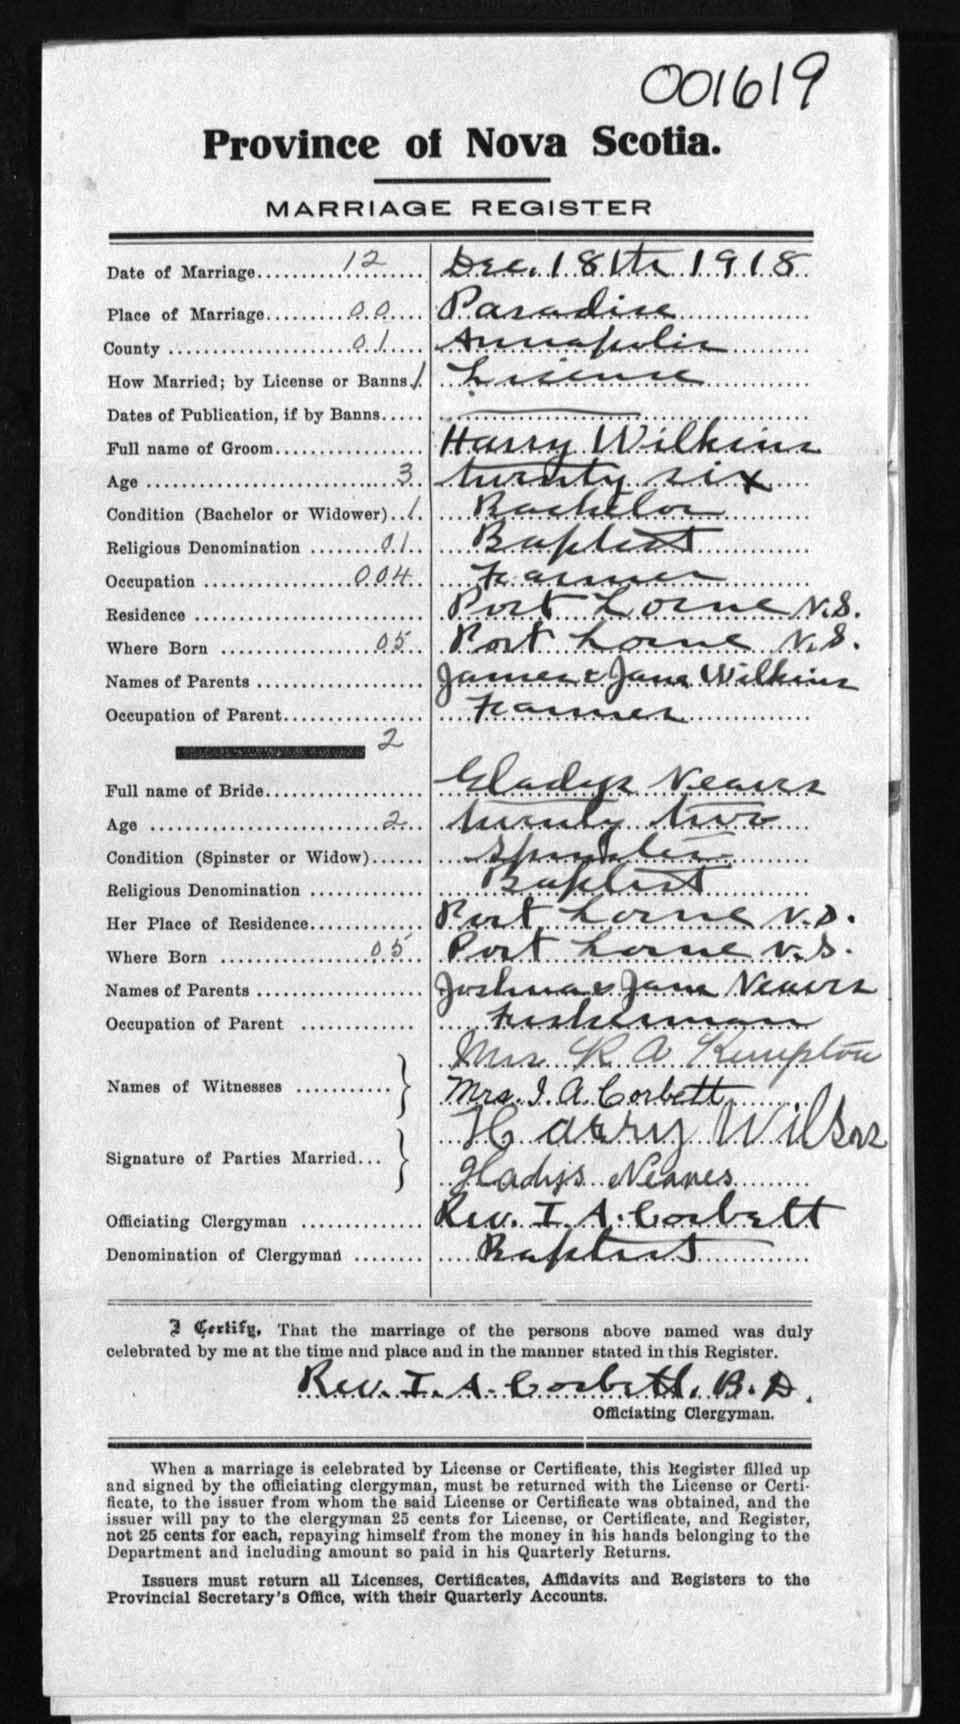 001619
Province of Nova Scotia.
MARRIAGE REGISTER
Date of Marriage..........12...... Dec. 18th 1918
Place of Marriage.........00..... Paradise
County ....................01..... Annapolis
How Married; by License or Banns 1. Lisense
Dates of Publication, if by Banns.....
Full name of Groom................. Harry Wilkins
Age ..........................3. twenty six
Condition (Bachelor or Widower)..1. Bachelor
Religious Denomination ........01.. Baptist
Occupation .................004.. Farmer
Residence ......................... Port Lorne N.S.
Where Born ..................05.. Port Lorne N.S.
Names of Parents ................... James & Jane Wilkins
Occupation of Parent................ Farmer
2
Full name of Bride.................. Gladys Neaves
Age ..........................2.. twenty two
Condition (Spinster or Widow)...... Spinster
Religious Denomination ............. Baptist
Her Place of Residence............. Port Lorne N.S.
Where Born ..................05.. Port Lorne N.S.
Names of Parents ................... Joshua & Jane Neaves
Occupation of Parent .............. Fisherman
Mrs R A Kempton
Names of Witnesses ...........
Mrs. I. A. Corbett
Harry
Signature of Parties Married...
Gladys Neaves
Officiating Clergyman .............. Rev. I. A. Corbett
Denomination of Clergyman ........ Baptist
I Certify, That the marriage of the persons above named was duly
celebrated by me at the time and place and in the manner stated in this Register.
Rev. I. A. Corbett, B.D.
Officiating Clergyman.
When a marriage is celebrated by License or Certificate, this Register filled up
and signed by the officiating clergyman, must be returned with the License or Certi-
ficate, to the issuer from whom the said License or Certificate was obtained, and the
issuer will pay to the clergyman 25 cents for License, or Certificate, and Register,
not 25 cents for each, repaying himself from the money in his hands belonging to the
Department and including amount so paid in his Quarterly Returns.
Issuers must return all Licenses, Certificates, Affidavits and Registers to the
Provincial Secretary's Office, with their Quarterly Accounts.